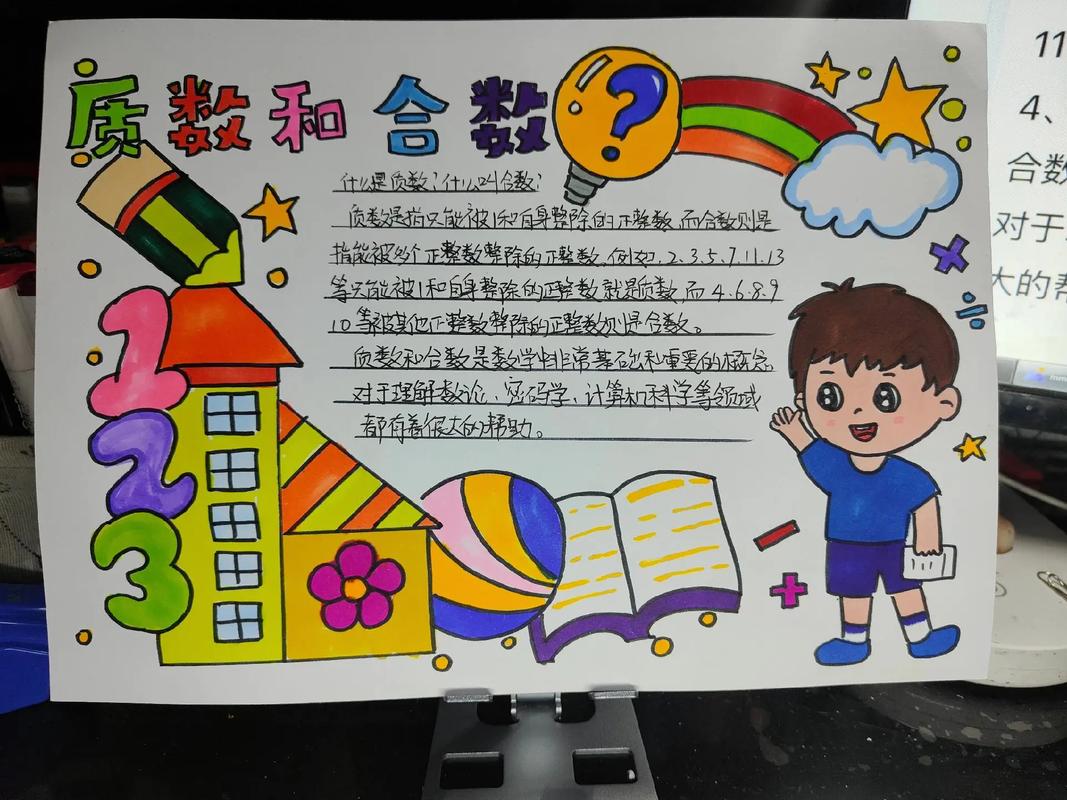 质数和合数
什么是质数？什么叫合数？
质数是指只能被1和自身整除的正整数，而合数则是
指能被多个正整数整除的正整数。例如，2、3、5、7、11、13
等只能被1和自身整除的正整数就是质数，而4、6、8、9
10等被其他正整数整除的正整数则是合数。
质数和合数是数学中非常基础和重要的概念。
对于理解数论、密码学、计算机科学等领域
都有着很大的帮助。
?
1
2
3
11
4、
合数
对于
大的帮